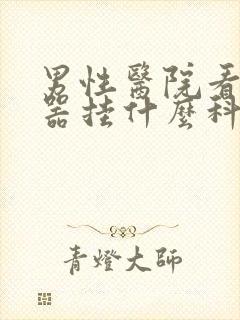 男性醫院看
器挂什麼科
青燈大師